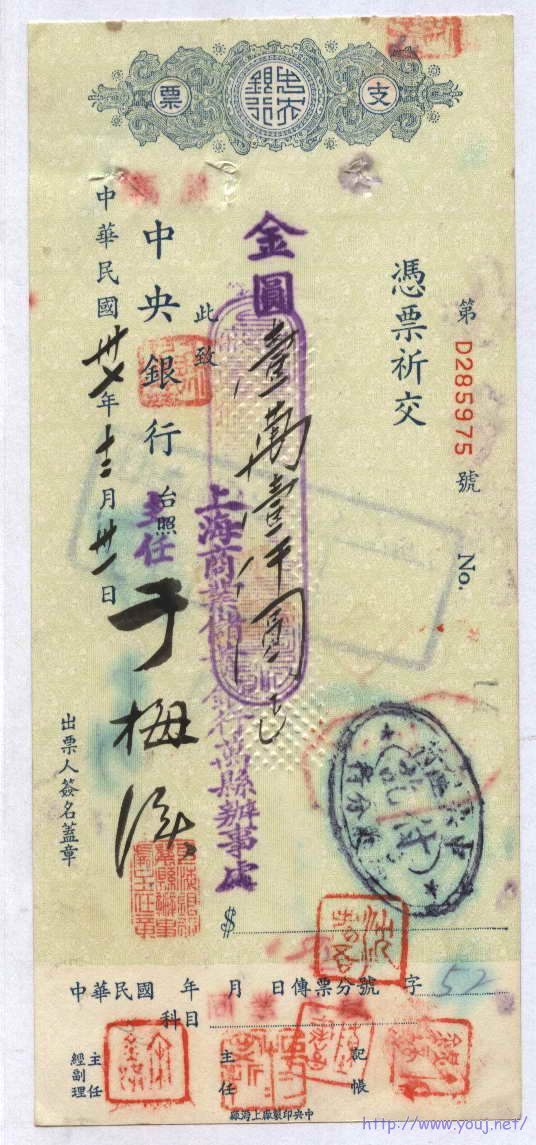 支
中央銀行
票
第 D285975 號 No.
憑票祈交
金圓壹萬壹仟圓
此致
中央銀行 台照
上海商業儲蓄銀行萬縣辦事處
主任
于梅
中華民國卅七年十二月卅一日
出票人簽名蓋章
付訖
$
中華民國 年 月 日傳票分號 字 52
科目
記帳
主任
主任
經副理
中央印製廠上海廠
http://www.youj.net/